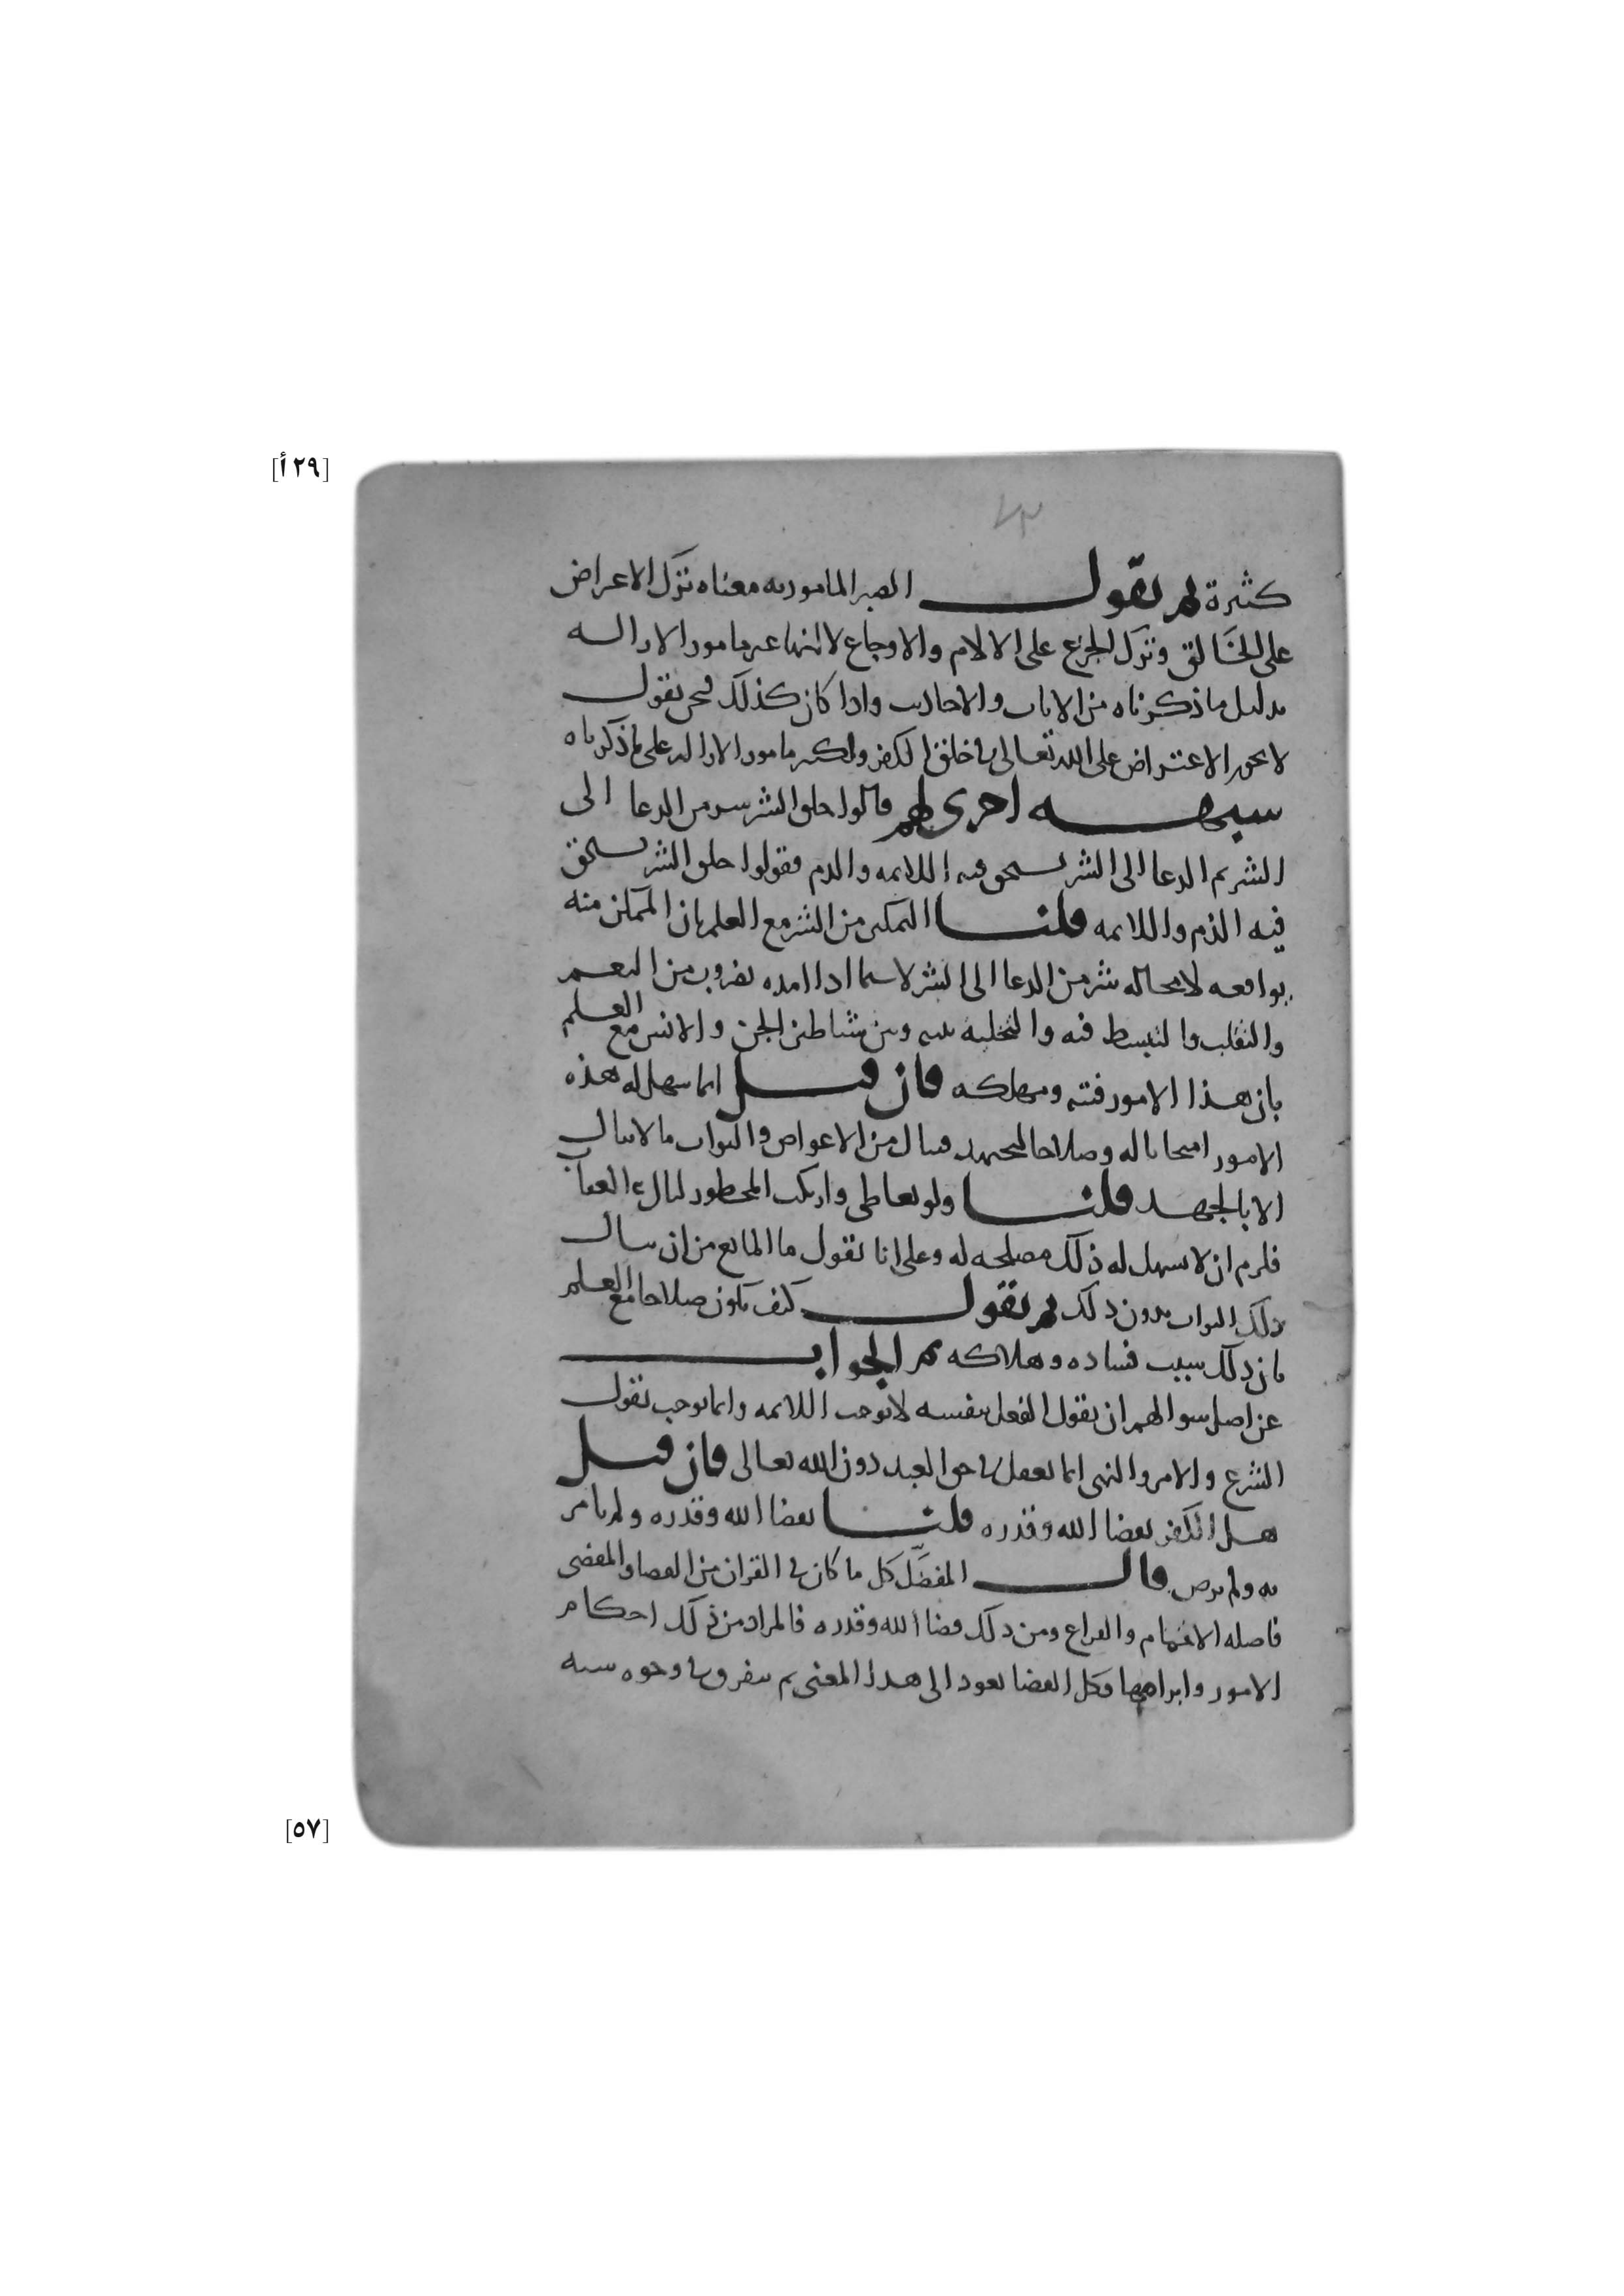 [٢٩ أ]
كثيرة ثم نقول الصبر المامور به معناه ترك الاعراض
على الخالق وترك الجزع على الالام والاوجاع لا انها غير مامور الازاله
بدليل ما ذكرناه من الايات والاحاديث واذا كان كذلك فنحن نقول
لا يجوز الاعتراض على الله تعالى في خلق الكفر ولكنه مامور الازاله على ما ذكرناه
شبهه اخرى لهم قالوا خلق الشر شر من الدعا الى
الشر ثم الدعا الى الشر يستحق فيه اللائمه والذم فقولوا خلق الشر يستحق
فيه الذم واللائمه قلنا التمكين من الشر مع العلم بان الممكن منه
يواقعه لا محاله شر من الدعا الى الشر لا سيما اذا امده بضروب من النعم
والتقلب والتبسط فيه والتخليه بينه وبين شياطين الجن والانس مع العلم
بان هذا الامور فتنه ومهلكه فان قيل انما سهل له هذه
الامور امتحانا له وصلاحا ليجتهد فينال من الاعواض والثواب ما لا ينال
الا بالجهد قلنا ولو تعاطى وارتكب المحظور لنال العقاب
فلزم ان لا يسهل له ذلك مصلحه له وعلى انا نقول ما المانع من ان ينال
ذلك الثواب بدون ذلك ثم نقول كيف يكون صلاحا مع العلم
بان ذلك سبب فساده وهلاكه ثم الجواب
عن اصل سوالهم ان نقول الفعل بنفسه لا يوجب اللائمه وانما يوجب نقول
الشرع والامر والنهي انما يعقل في حق العبد دون الله تعالى فان قيل
هل الكفر بقضا الله وقدره قلنا بقضا الله وقدره ولم يامر
به ولم يرض قال المفضل كل ما كان في القران من القضا والمقضي
فاصله الاتمام والفراغ ومن ذلك قضا الله وقدره فالمراد من ذلك احكام
الامور وابرامها وكل القضا يعود الى هذا المعنى ثم يتفرق في وجوه
[٥٧]